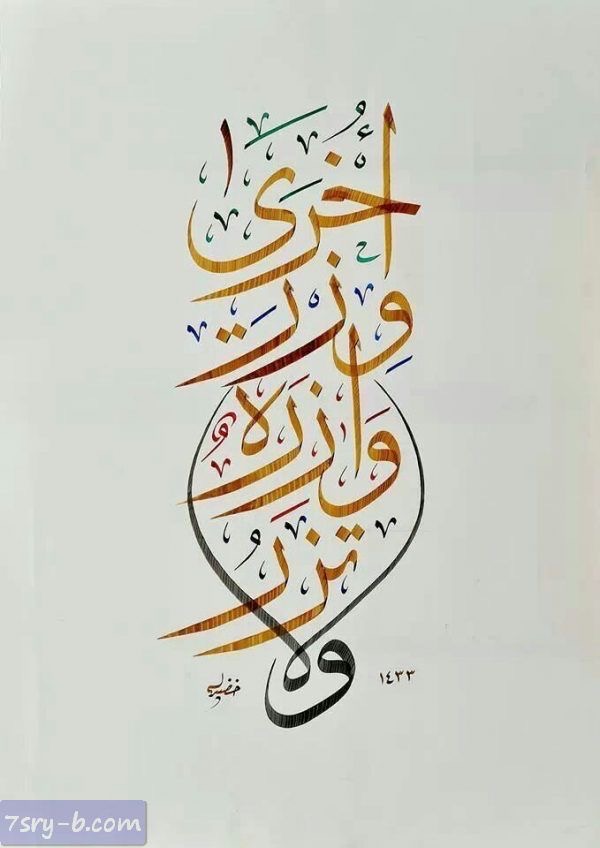 ولا
تزر
وازرة
وزر
أخرى
١٤٣٣
7sry-b.com